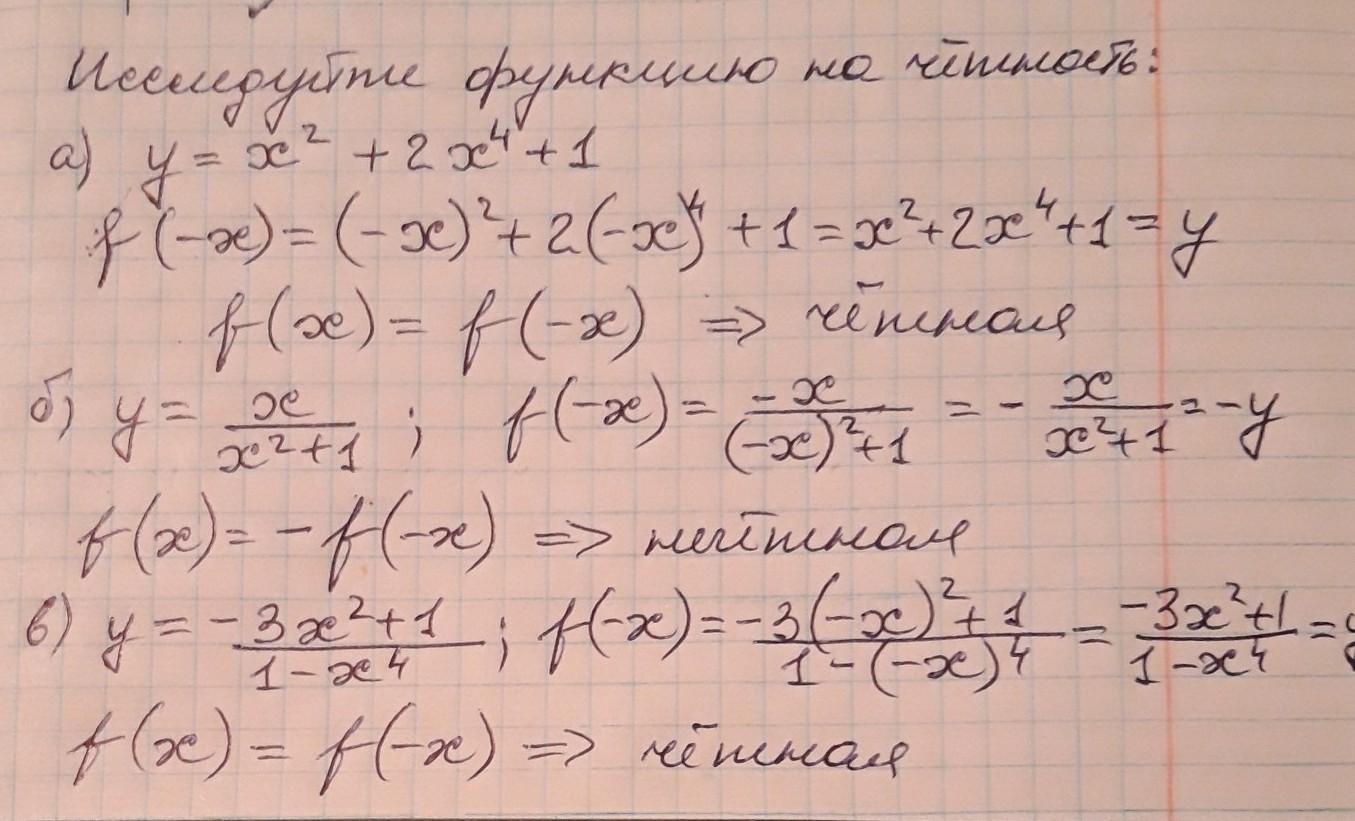 Исследуйте функцию на чётность:
а) y = x² + 2x⁴ + 1
f(-x) = (-x)² + 2(-x)⁴ + 1 = x² + 2x⁴ + 1 = y
f(x) = f(-x) => чётная
б) y = x/(x²+1) ; f(-x) = -x/((-x)²+1) = - x/(x²+1) = -y
f(x) = -f(-x) => нечётная
в) y = (-3x²+1)/(1-x⁴) ; f(-x) = (-3(-x)²+1)/(1-(-x)⁴) = (-3x²+1)/(1-x⁴) =
f(x) = f(-x) => чётная